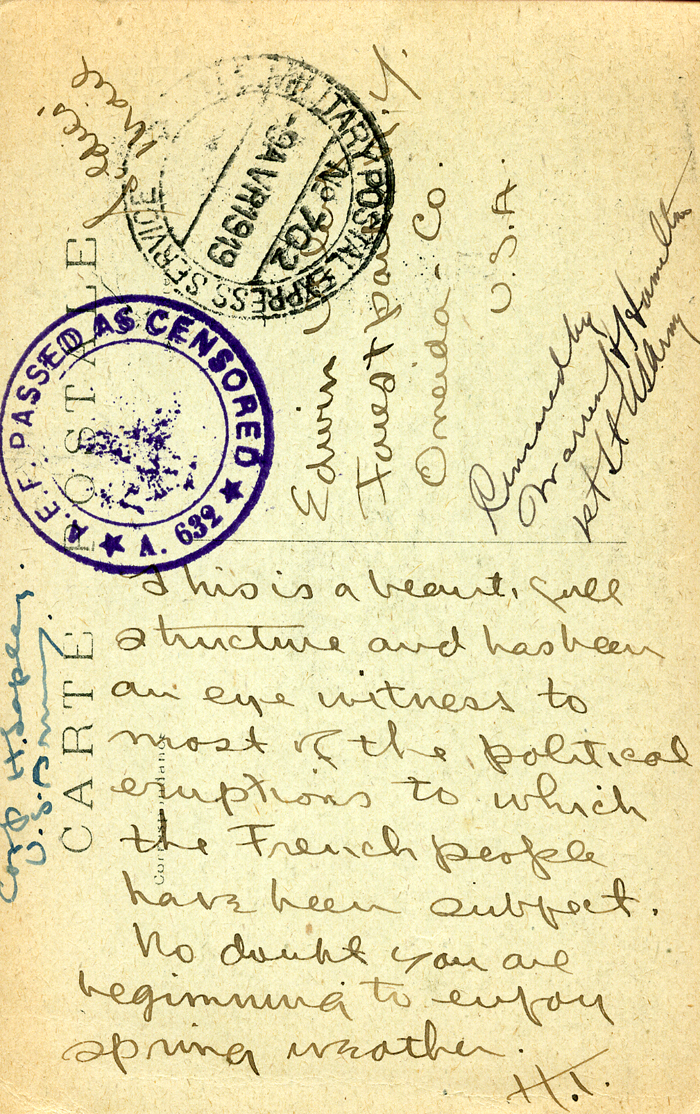 CARTE POSTALE
Correspondance
Soldier's
Mail
MILITARY POSTAL EXPRESS SERVICE
No 702
-9 AVR 1919
A.E.F. PASSED AS CENSORED
A. 632
Edwin
Forestport N.Y.
Oneida - Co.
U.S.A.
Censored by
Warren H Hamilton
1st Lt USArmy
Corp H.
U.S. Army.
This is a beauti full
structure and has been
an eye witness to
most of the political
eruptions to which
the French people
have been subject.
No doubt you are
beginning to enjoy
spring weather.
H.T.